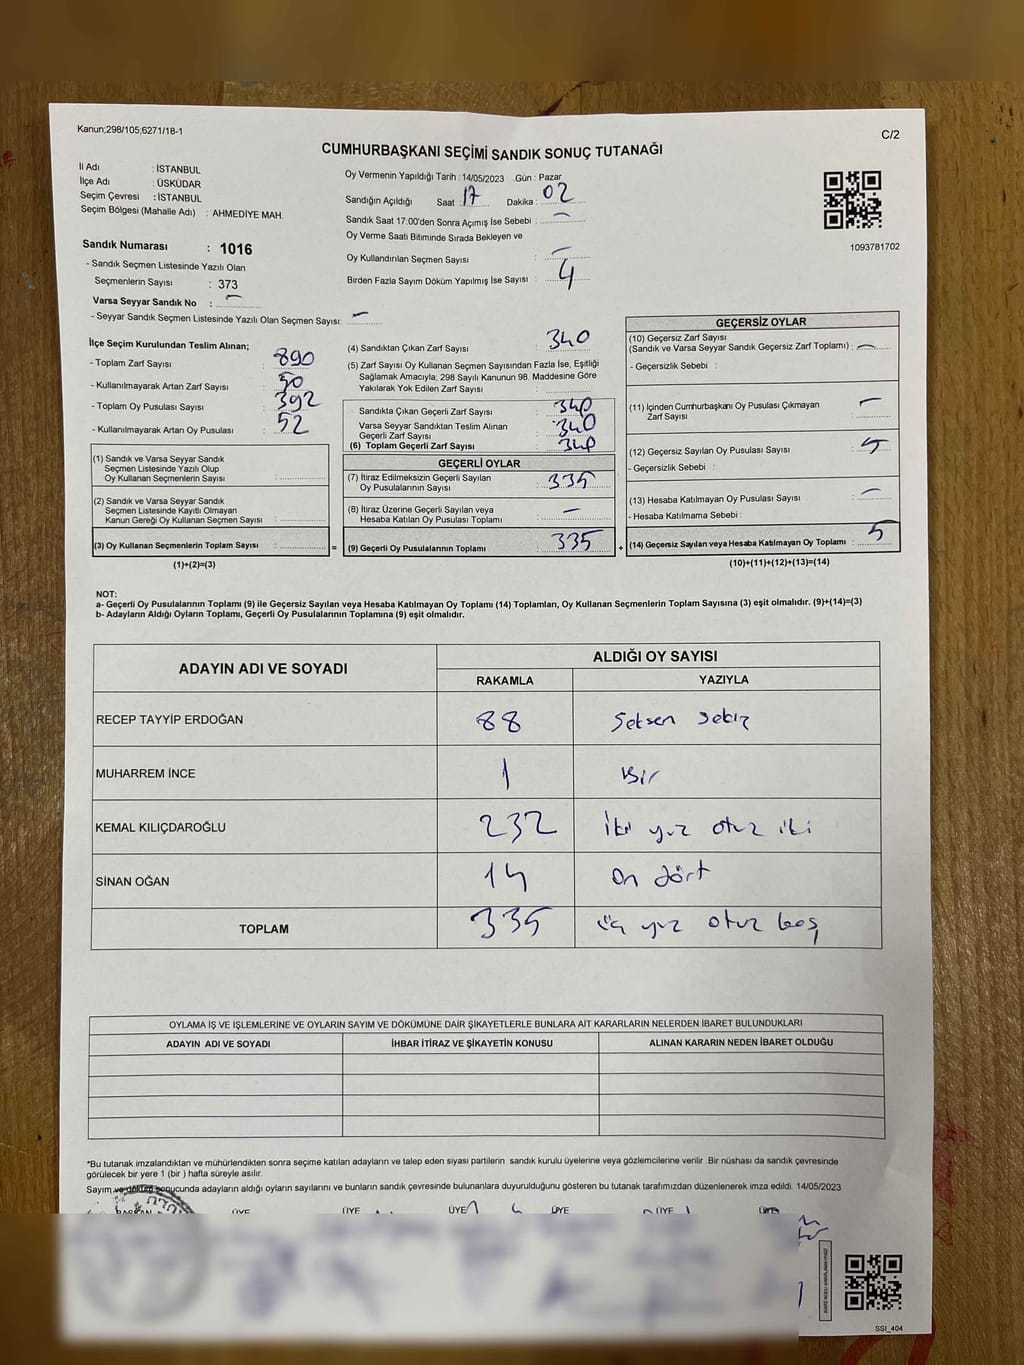 Kanun;298/105;6271/18-1
C/2
CUMHURBAŞKANI SEÇİMİ SANDIK SONUÇ TUTANAĞI
İl Adı : İSTANBUL
İlçe Adı : ÜSKÜDAR
Seçim Çevresi : İSTANBUL
Seçim Bölgesi (Mahalle Adı) : AHMEDİYE MAH.
Oy Vermenin Yapıldığı Tarih : 14/05/2023 .Gün : Pazar
Sandığın Açıldığı Saat : 17 Dakika : 02
Sandık Saat 17:00'den Sonra Açımış İse Sebebi : -
Oy Verme Saati Bitiminde Sırada Bekleyen ve
Oy Kullandırılan Seçmen Sayısı : -
Birden Fazla Sayım Döküm Yapılmış İse Sayısı : 4
1093781702
Sandık Numarası : 1016
- Sandık Seçmen Listesinde Yazılı Olan
Seçmenlerin Sayısı : 373
Varsa Seyyar Sandık No : -
- Seyyar Sandık Seçmen Listesinde Yazılı Olan Seçmen Sayısı: -
İlçe Seçim Kurulundan Teslim Alınan;
- Toplam Zarf Sayısı : 890
- Kullanılmayarak Artan Zarf Sayısı :
- Toplam Oy Pusulası Sayısı : 392
- Kullanılmayarak Artan Oy Pusulası : 52
(1) Sandık ve Varsa Seyyar Sandık
Seçmen Listesinde Yazılı Olup
Oy Kullanan Seçmenlerin Sayısı :
(2) Sandık ve Varsa Seyyar Sandık
Seçmen Listesinde Kayıtlı Olmayan
Kanun Gereği Oy Kullanan Seçmen Sayısı :
(3) Oy Kullanan Seçmenlerin Toplam Sayısı : =
(1)+(2)=(3)
(4) Sandıktan Çıkan Zarf Sayısı : 340
(5) Zarf Sayısı Oy Kullanan Seçmen Sayısından Fazla İse, Eşitliği
Sağlamak Amacıyla; 298 Sayılı Kanunun 98. Maddesine Göre
Yakılarak Yok Edilen Zarf Sayısı :
Sandıkta Çıkan Geçerli Zarf Sayısı : 340
Varsa Seyyar Sandıktan Teslim Alınan
Geçerli Zarf Sayısı : 340
(6) Toplam Geçerli Zarf Sayısı : 340
GEÇERLİ OYLAR
(7) İtiraz Edilmeksizin Geçerli Sayılan
Oy Pusulalarının Sayısı : 335
(8) İtiraz Üzerine Geçerli Sayılan veya
Hesaba Katılan Oy Pusulası Toplamı : -
(9) Geçerli Oy Pusulalarının Toplamı : 335 +
GEÇERSİZ OYLAR
(10) Geçersiz Zarf Sayısı
(Sandık ve Varsa Seyyar Sandık Geçersiz Zarf Toplamı) : -
- Geçersizlik Sebebi :
(11) İçinden Cumhurbaşkanı Oy Pusulası Çıkmayan
Zarf Sayısı : -
(12) Geçersiz Sayılan Oy Pusulası Sayısı : 5
- Geçersizlik Sebebi :
(13) Hesaba Katılmayan Oy Pusulası Sayısı : -
- Hesaba Katılmama Sebebi :
(14) Geçersiz Sayılan veya Hesaba Katılmayan Oy Toplamı : 5
(10)+(11)+(12)+(13)=(14)
NOT:
a- Geçerli Oy Pusulalarının Toplamı (9) ile Geçersiz Sayılan veya Hesaba Katılmayan Oy Toplamı (14) Toplamları, Oy Kullanan Seçmenlerin Toplam Sayısına (3) eşit olmalıdır. (9)+(14)=(3)
b- Adayların Aldığı Oyların Toplamı, Geçerli Oy Pusulalarının Toplamına (9) eşit olmalıdır.
ADAYIN ADI VE SOYADI ALDIĞI OY SAYISI
RAKAMLA YAZIYLA
RECEP TAYYİP ERDOĞAN 88 Seksen sekiz
MUHARREM İNCE 1 Bir
KEMAL KILIÇDAROĞLU 232 İki yüz otuz iki
SİNAN OĞAN 14 On dört
TOPLAM 335 üç yüz otuz beş
OYLAMA İŞ VE İŞLEMLERİNE VE OYLARIN SAYIM VE DÖKÜMÜNE DAİR ŞİKAYETLERLE BUNLARA AİT KARARLARIN NELERDEN İBARET BULUNDUKLARI
ADAYIN ADI VE SOYADI İHBAR İTİRAZ VE ŞİKAYETİN KONUSU ALINAN KARARIN NEDEN İBARET OLDUĞU
*Bu tutanak imzalandıktan ve mühürlendikten sonra seçime katılan adayların ve talep eden siyasi partilerin sandık kurulu üyelerine veya gözlemcilerine verilir .Bir nüshası da sandık çevresinde
görülecek bir yere 1 (bir ) hafta süreyle asılır.
Sayım ve döküm sonucunda adayların aldığı oyların sayılarını ve bunların sandık çevresinde bulunanlara duyurulduğunu gösteren bu tutanak tarafımızdan düzenlenerek imza edildi. 14/05/2023
BAŞKAN ÜYE ÜYE ÜYE ÜYE ÜYE ÜYE
SSI_404